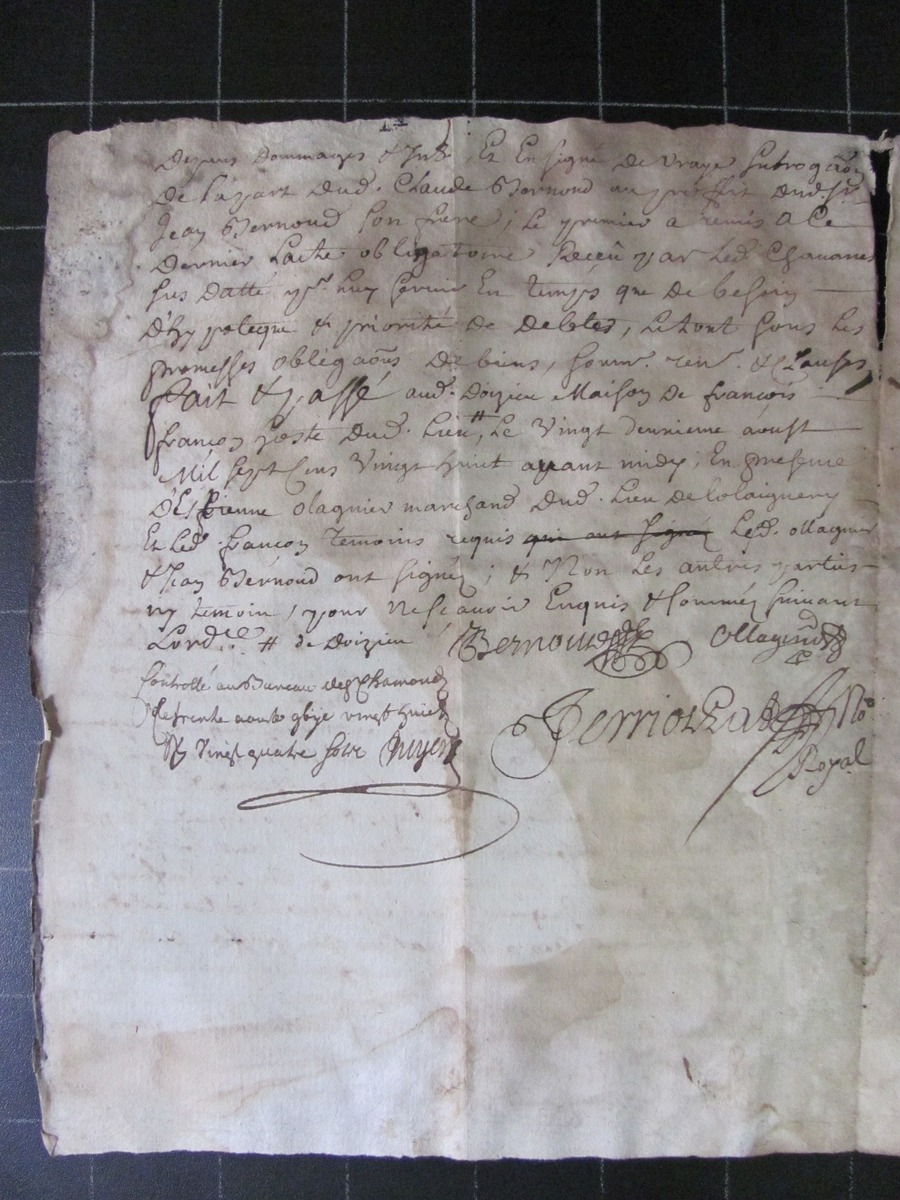 Depens Dommages & Int, Et En signe de vraye subrogaõn
De la part dud. Claude Bernoud au proffit dud. Sr
Jean Bernoud son frere; Le premier a remis a Ce
Dernier L'acte obligatoire Receu par Led. Chavanne
sus datté pr. luy servir En temps que de besoing
D'hypoteque & priorité de debtes, Le tout sous Les
promesses obligaõns de biens, soum. ren. & Clauses
Fait & passé aud. Doizieu Maison de françois
françon hoste Dud. Lieu #, Le Vingt deuxieme aoust
Mil sept Cens Vingt huict avant midy; En presence
D'Estienne Olagnier marchand Dud. Lieu de
Et Led. françon temoins requis qui ont signé Led. ollagnier
& Jean Bernoud ont signé; & Non Les autres parties
ny temoin, pour Ne scavoir Enquis & sommés suivant
Lordce # de Doizieu Bernoud Ollagnier
Controllé au Bureau de St Chamond
Le trente aoust vingt huict
R vingt quatre sols
Perriolat No.
Royal